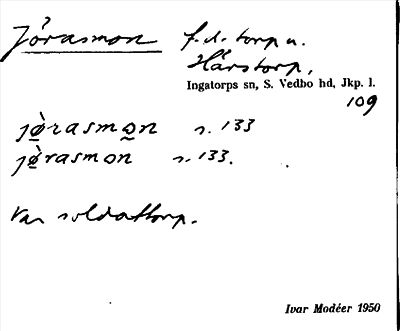 Jörasmon f.d. torp u.
Härstorp,
Ingatorps sn, S. Vedbo hd, Jkp. l.
109
jø̀rasmon s. 133
jø̀rasmon s. 133.
Var soldattorp.
Ivar Modéer 1950